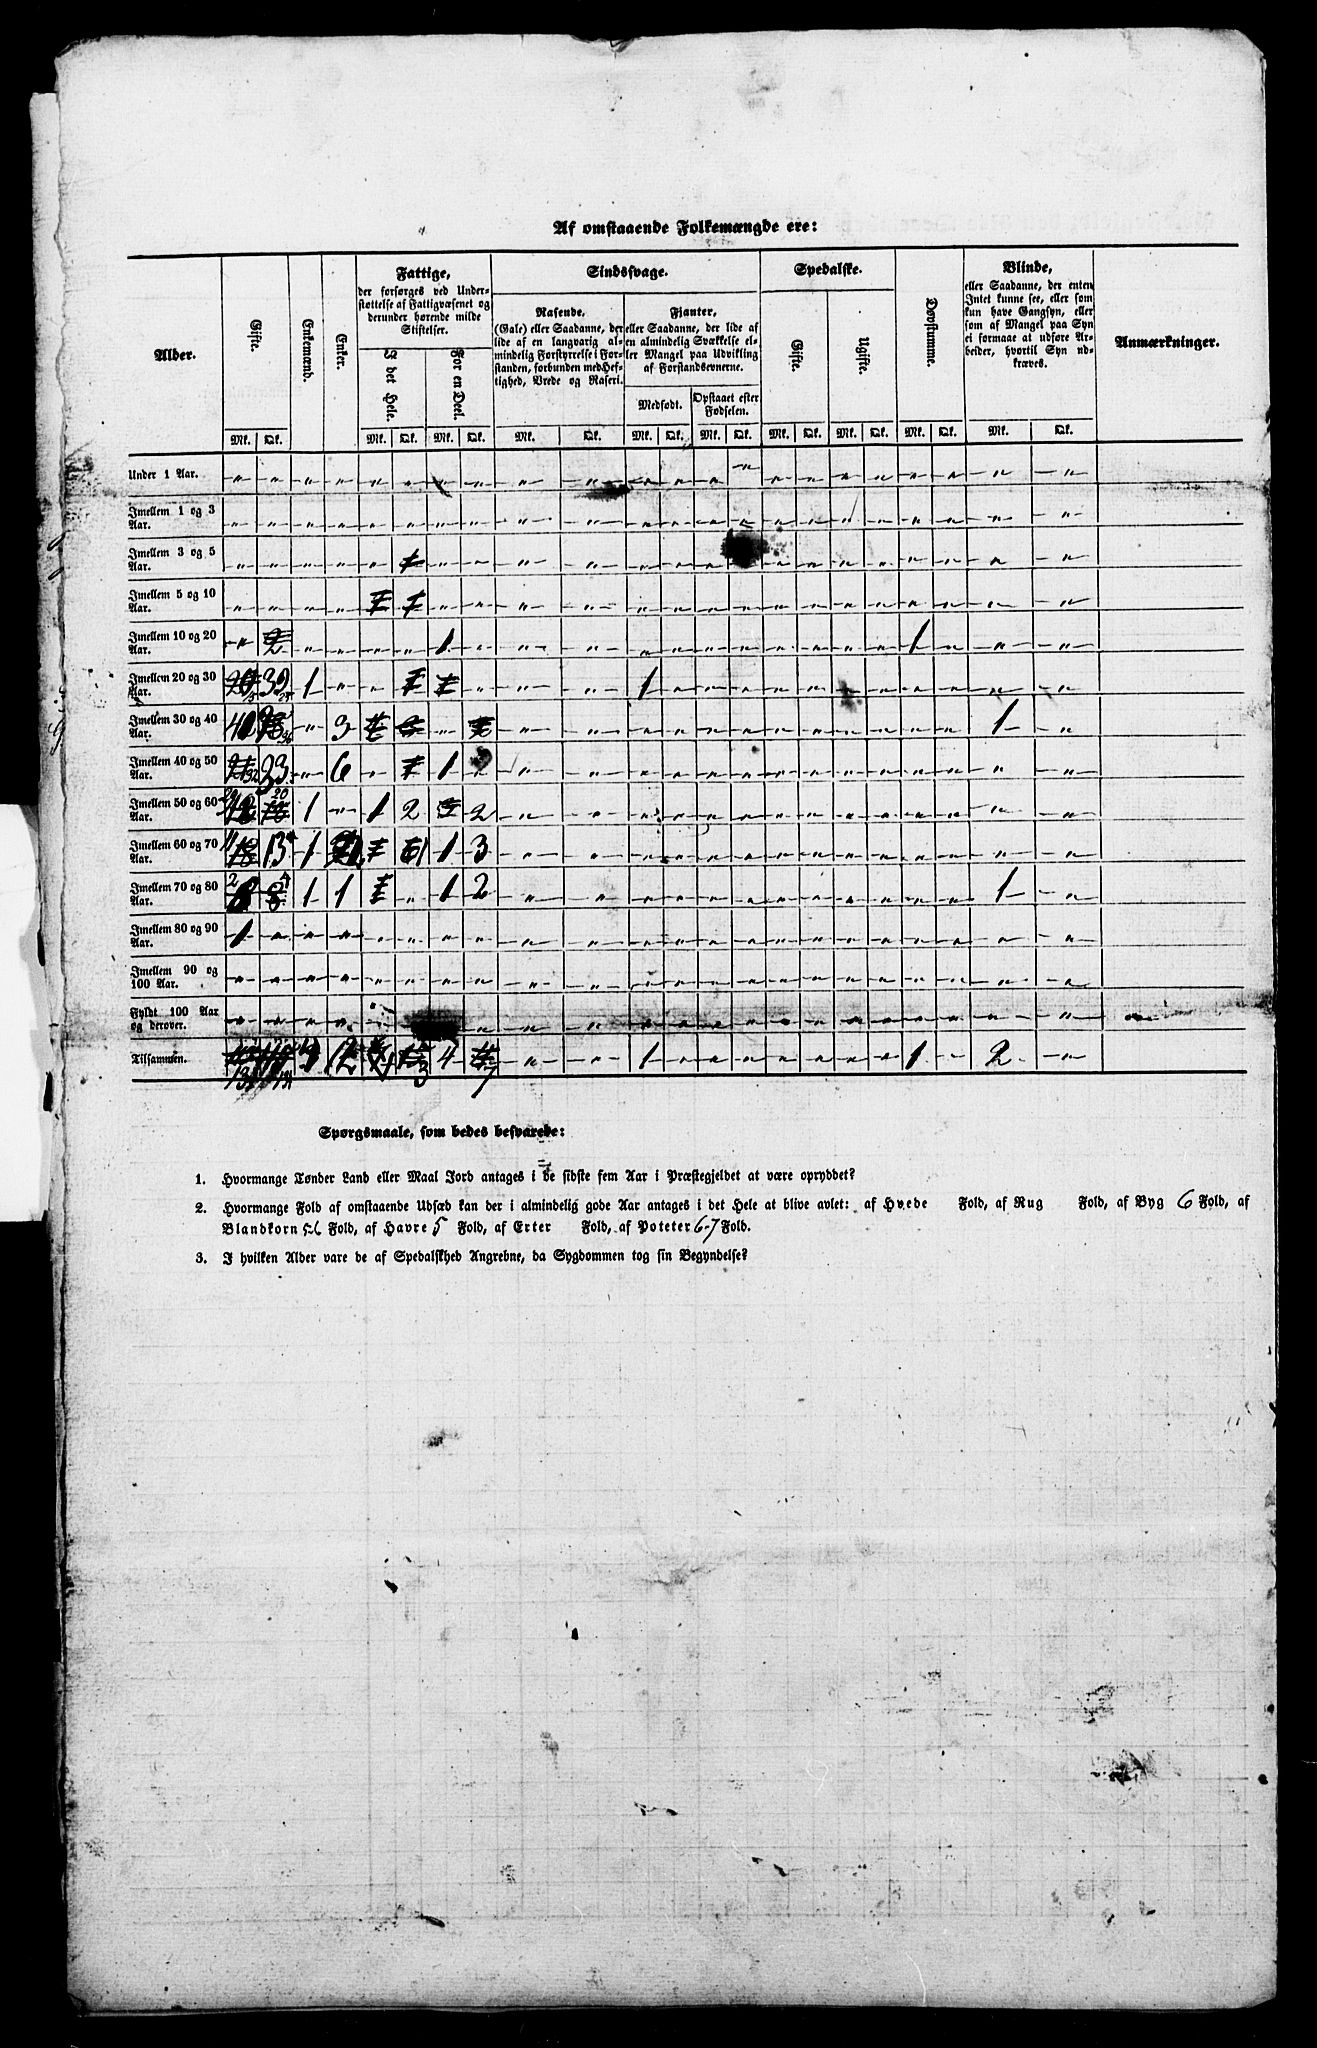 Af omstaaende Folkemængde ere:
Alder.
Gifte.
Enkemænd.
Enker.
Fattige,
der forsørges ved Under-
støttelse af Fattigvæsenet og
derunder hørende milde
Stiftelser.
I det Hele.
For en Deel.
Sindssvage.
Rasende.
(Gale) eller Saadanne, der
lide af en langvarig al-
mindelig Forstyrrelse i For-
standen, forbunden med Hef-
tighed, Vrede og Raseri.
Fjanter,
eller Saadanne, der lide af
en almindelig Svækkelse el-
ler Mangel paa Udvikling
af Forstandsevnerne.
Medfødt.
Opstaaet efter
Fødselen.
Spedalske.
Gifte.
Ugifte.
Døvstumme.
Blinde,
eller Saadanne, der enten
Intet kunne see, eller som
kun have Gangsyn, eller
som af Mangel paa Syn
ei formaae at udføre Ar-
beider, hvortil Syn ud-
kræves.
Anmærkninger.
Mk. Qk. Mk. Qk. Mk. Qk. Mk. Qk. Mk. Qk. Mk. Qk. Mk. Qk. Mk. Qk. Mk. Qk. Mk. Qk.
Under 1 Aar.
Imellem 1 og 3
Aar.
Imellem 3 og 5
Aar.
Imellem 5 og 10
Aar.
Imellem 10 og 20 1 1
Aar.
Imellem 20 og 30 1 1
Aar.
Imellem 30 og 40 3 1
Aar.
Imellem 40 og 50 23 6 1
Aar.
Imellem 50 og 60 20 1 1 2 2
Aar.
Imellem 60 og 70 11 13 1 1 1 3
Aar.
Imellem 70 og 80 2 4 1 1 1 2 1
Aar.
Imellem 80 og 90 1
Aar.
Imellem 90 og
100 Aar.
Fyldt 100 Aar
og derover.
Tilsammen. 12 1 3 4 7 1 1 2
Spørgsmaale, som bedes besvarede:
1. Hvormange Tønder Land eller Maal Jord antages i de sidste fem Aar i Præstegjeldet at være opryddet?
2. Hvormange Fold af omstaaende Udsæd kan der i almindelig gode Aar antages i det Hele at blive avlet: af Hvede Fold, af Rug Fold, af Byg 6 Fold, af
Blandkorn 5-6 Fold, af Havre 5 Fold, af Erter Fold, af Poteter 6-7 Fold.
3. I hvilken Alder vare de af Spedalskhed Angrebne, da Sygdommen tog sin Begyndelse?